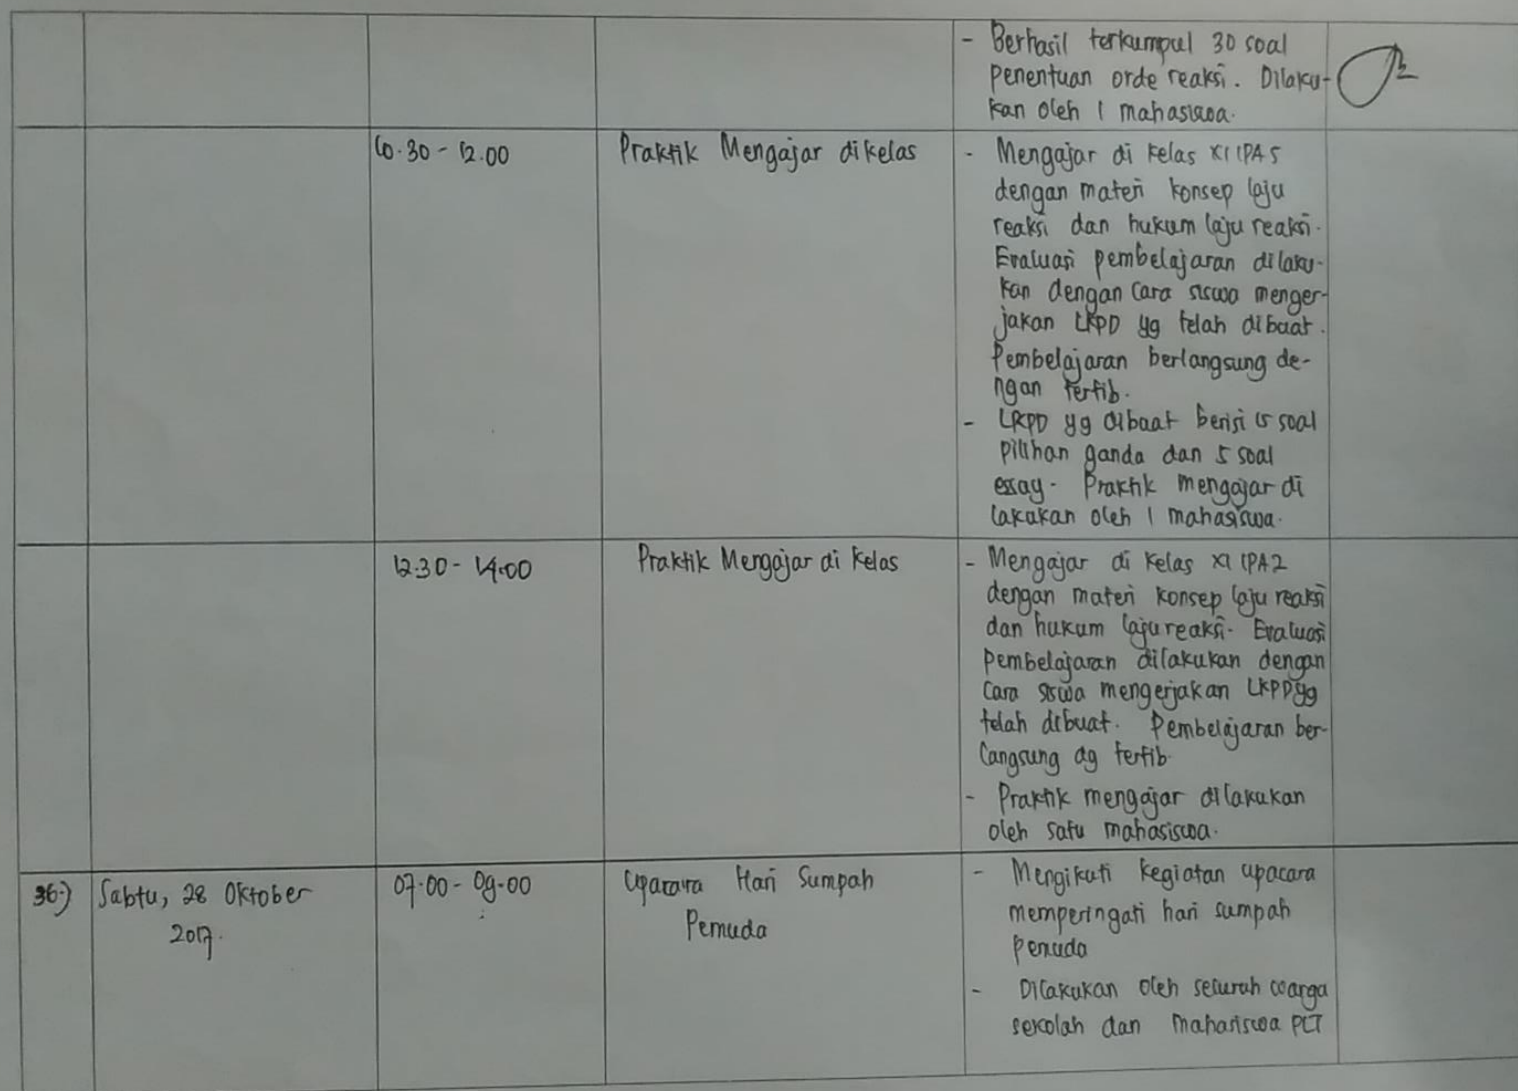 - Berhasil terkumpul 30 soal
penentuan orde reaksi. Dilaku-
kan oleh 1 mahasiswa.
10.30 - 12.00
Praktik Mengajar dikelas
- Mengajar di kelas XI IPA 5
dengan materi konsep laju
reaksi dan hukum laju reaksi.
Evaluasi pembelajaran dilaku-
kan dengan cara siswa menger-
jakan LKPD yg telah dibuat.
Pembelajaran berlangsung de-
ngan tertib.
- LKPD yg dibuat berisi 15 soal
pilihan ganda dan 5 soal
essay. Praktik mengajar di
lakukan oleh 1 mahasiswa.
12.30 - 14.00
Praktik Mengajar di Kelas
- Mengajar di kelas XI IPA 2
dengan materi konsep laju reaksi
dan hukum laju reaksi. Evaluasi
pembelajaran dilakukan dengan
cara siswa mengerjakan LKPD yg
telah dibuat. Pembelajaran ber-
langsung dg tertib.
- Praktik mengajar dilakukan
oleh satu mahasiswa.
36.)
Sabtu, 28 Oktober
2017.
07.00 - 09.00
Upacara Hari Sumpah
Pemuda
- Mengikuti kegiatan upacara
memperingati hari sumpah
pemuda
- Dilakukan oleh seluruh warga
sekolah dan mahasiswa PLT